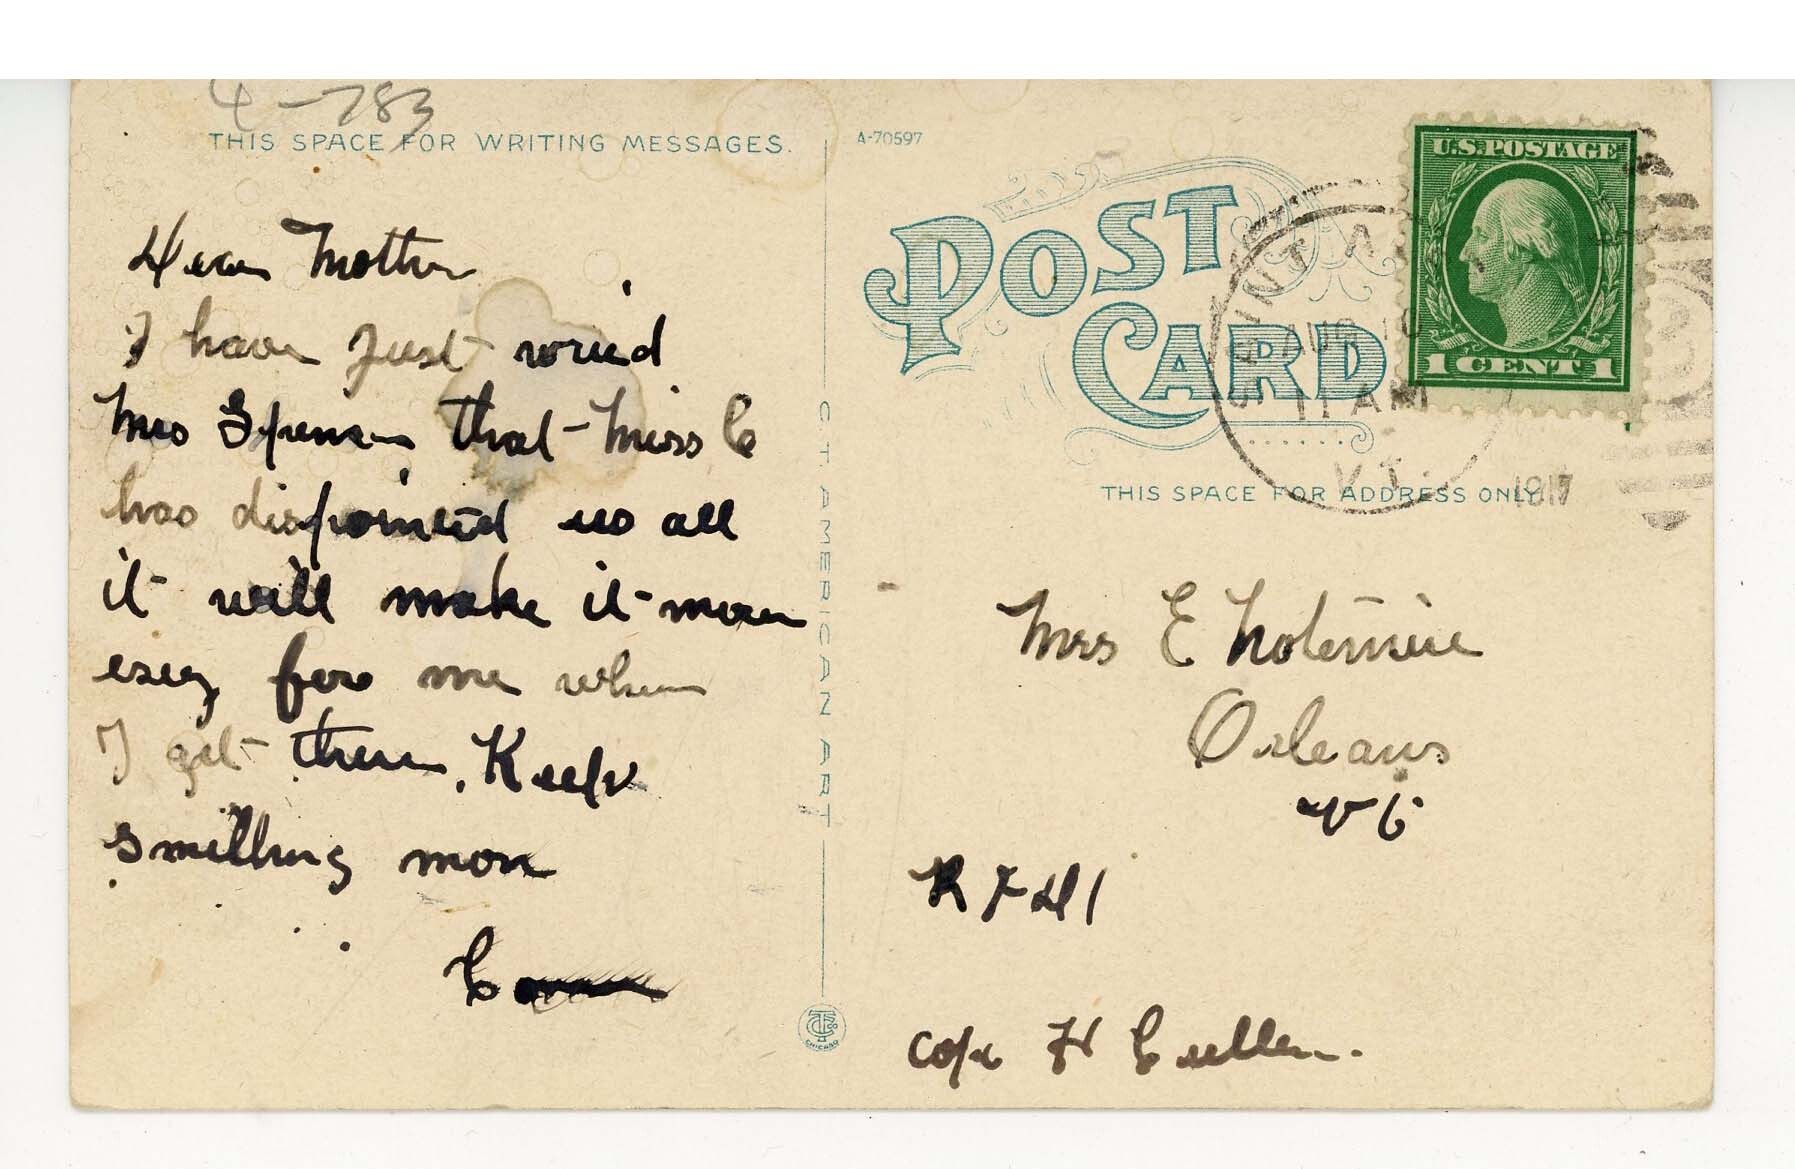 4-783
THIS SPACE FOR WRITING MESSAGES.
A-70597
POST
CARD
U.S. POSTAGE
1 CENT 1
SAINT A
AUG 10
11 AM
VT.
1917
THIS SPACE FOR ADDRESS ONLY
Dear Mother
I have just
Mrs that Miss C
has dispointed us all
it will make it more
esey for me when
I get there. Keep
smilling more
C. T. AMERICAN ART
Mrs E
Orleans
Vt
R F D 1
H Cullen.
CHICAGO